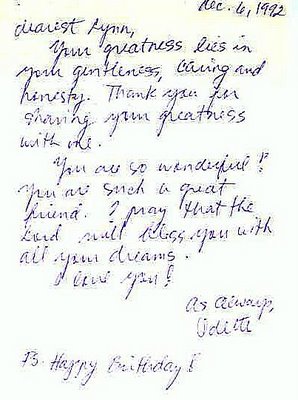 Dec. 6, 1992
Dearest Lynn,
Your greatness lies in
your gentleness, caring and
honesty. Thank you for
sharing your greatness
with me.
You are so wonderful!
You are such a great
friend. I pray that the
Lord will bless you with
all your dreams.
I love you!
As always,
Odette
PS. Happy Birthday!